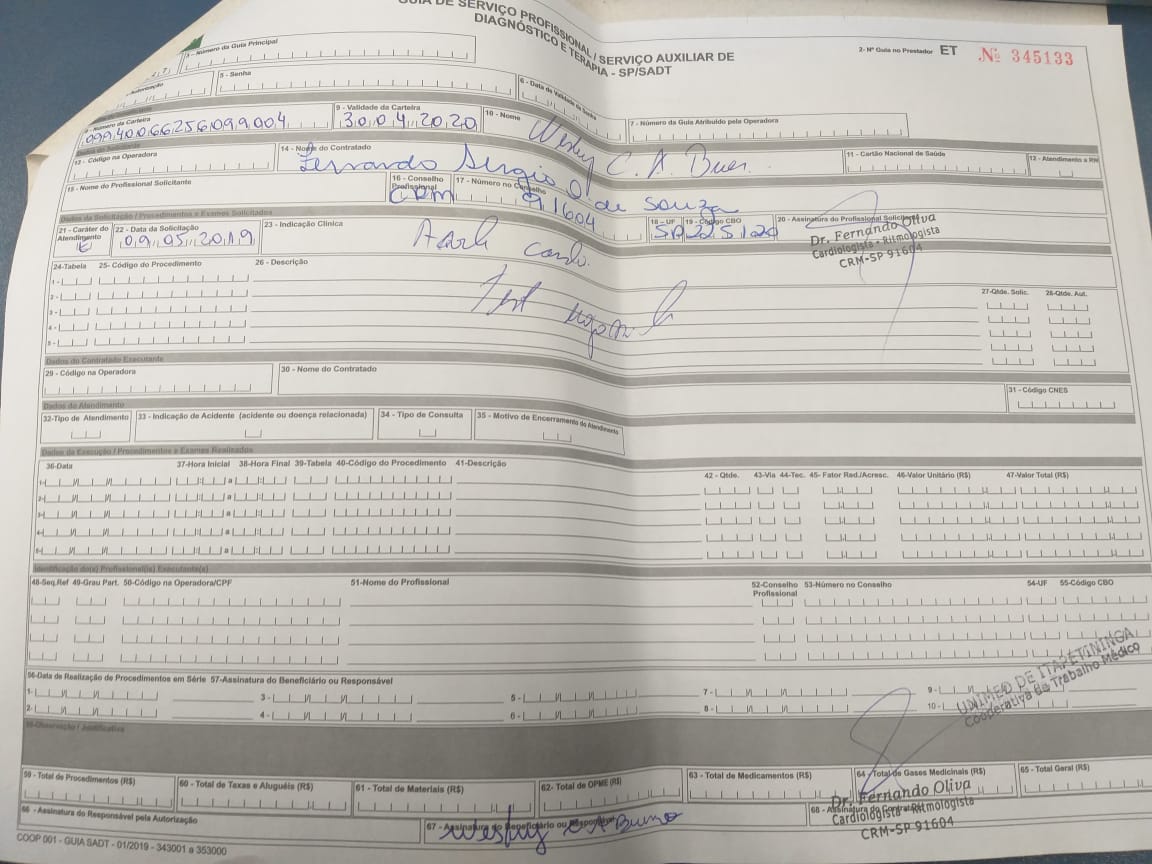 GUIA DE SERVIÇO PROFISSIONAL / SERVIÇO AUXILIAR DE
DIAGNÓSTICO E TERAPIA - SP/SADT
2- Nº Guia no Prestador ET Nº 345133
3 - Número da Guia Principal
5 - Senha
6 - Data de Validade da Senha
7 - Número da Guia Atribuído pela Operadora
Número da Carteira
9 - Validade da Carteira
10 - Nome
30.04.2020
Wesley C. A.
Dados do Solicitante
12 - Código na Operadora
14 - Nome do Contratado
11 - Cartão Nacional de Saúde
12 - Atendimento a RN
Fernando Sergio O. de Souza
15 - Nome do Profissional Solicitante
16 - Conselho Profissional
17 - Número no Conselho
18 - UF
19 - Código CBO
20 - Assinatura do Profissional Solicitante
CRM
91604
SP 225120
Dr. Fernando Oliva
Cardiologista - Ritmologista
CRM-SP 91604
Dados da Solicitação / Procedimentos e Exames Solicitados
21 - Caráter do Atendimento
22 - Data da Solicitação
23 - Indicação Clínica
E
09.05.2019
24-Tabela
25- Código do Procedimento
26 - Descrição
27-Qtde. Solic.
28-Qtde. Aut.
1 -
2 -
3 -
4 -
5 -
Dados do Contratado Executante
29 - Código na Operadora
30 - Nome do Contratado
31 - Código CNES
Dados do Atendimento
32-Tipo de Atendimento
33 - Indicação de Acidente (acidente ou doença relacionada)
34 - Tipo de Consulta
35 - Motivo de Encerramento do Atendimento
Dados da Execução / Procedimentos e Exames Realizados
36-Data
37-Hora Inicial
38-Hora Final
39-Tabela
40-Código do Procedimento
41-Descrição
42 - Qtde.
43-Via
44-Tec.
45- Fator Red./Acresc.
46-Valor Unitário (R$)
47-Valor Total (R$)
Identificação do(s) Profissional(is) Executante(s)
48-Seq.Ref
49-Grau Part.
50-Código na Operadora/CPF
51-Nome do Profissional
52-Conselho Profissional
53-Número no Conselho
54-UF
55-Código CBO
56-Data de Realização de Procedimentos em Série
57-Assinatura do Beneficiário ou Responsável
1-
3 -
5 -
7 -
9 -
2-
4 -
6 -
8 -
10 -
UNIMED DE ITAPETININGA
Cooperativa de Trabalho Médico
58-Observação / Justificativa
59 - Total de Procedimentos (R$)
60 - Total de Taxas e Aluguéis (R$)
61 - Total de Materiais (R$)
62- Total de OPME (R$)
63 - Total de Medicamentos (R$)
64 - Total de Gases Medicinais (R$)
65 - Total Geral (R$)
66 - Assinatura do Responsável pela Autorização
67 - Assinatura do Beneficiário ou Responsável
68 - Assinatura do Contratado
Dr. Fernando Oliva
Cardiologista - Ritmologista
CRM-SP 91604
COOP 001 - GUIA SADT - 01/2019 - 343001 a 353000